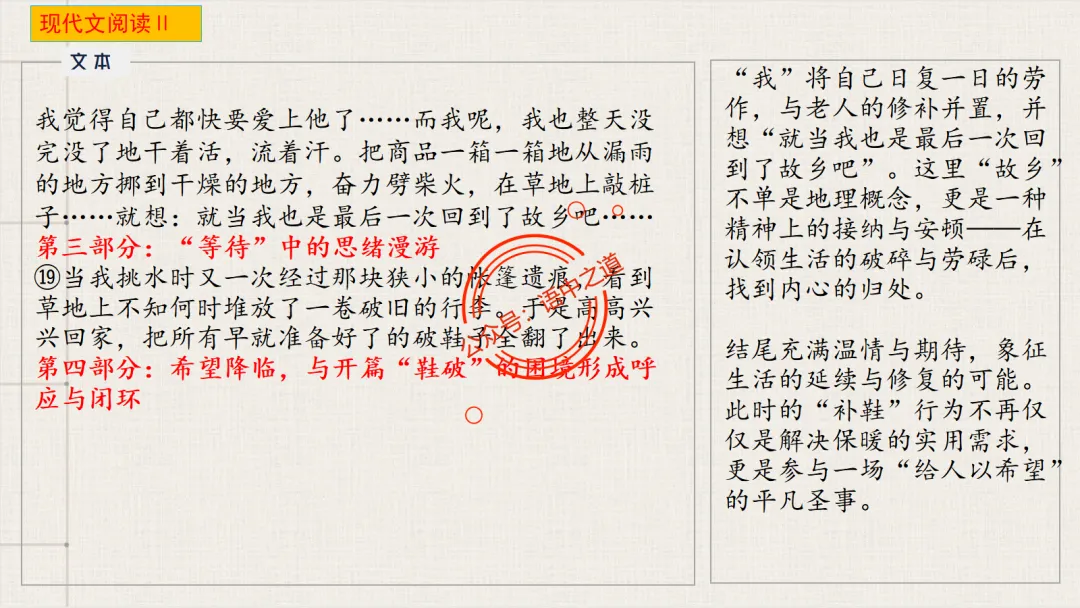 现代文阅读Ⅱ
文本
我觉得自己都快要爱上他了……而我呢，我也整天没
完没了地干着活，流着汗。把商品一箱一箱地从漏雨
的地方挪到干燥的地方，奋力劈柴火，在草地上敲桩
子……就想：就当我也是最后一次回到了故乡吧……
第三部分：“等待”中的思绪漫游
⑲当我挑水时又一次经过那块狭小的帐篷遗痕，看到
草地上不知何时堆放了一卷破旧的行李。于是高高兴
兴回家，把所有早就准备好了的破鞋子全翻了出来。
第四部分：希望降临，与开篇“鞋破”的困境形成呼
应与闭环
公众号：语中之道
“我”将自己日复一日的劳
作，与老人的修补并置，并
想“就当我也是最后一次回
到了故乡吧”。这里“故乡”
不单是地理概念，更是一种
精神上的接纳与安顿——在
认领生活的破碎与劳碌后，
找到内心的归处。
结尾充满温情与期待，象征
生活的延续与修复的可能。
此时的“补鞋”行为不再仅
仅是解决保暖的实用需求，
更是参与一场“给人以希望”
的平凡圣事。